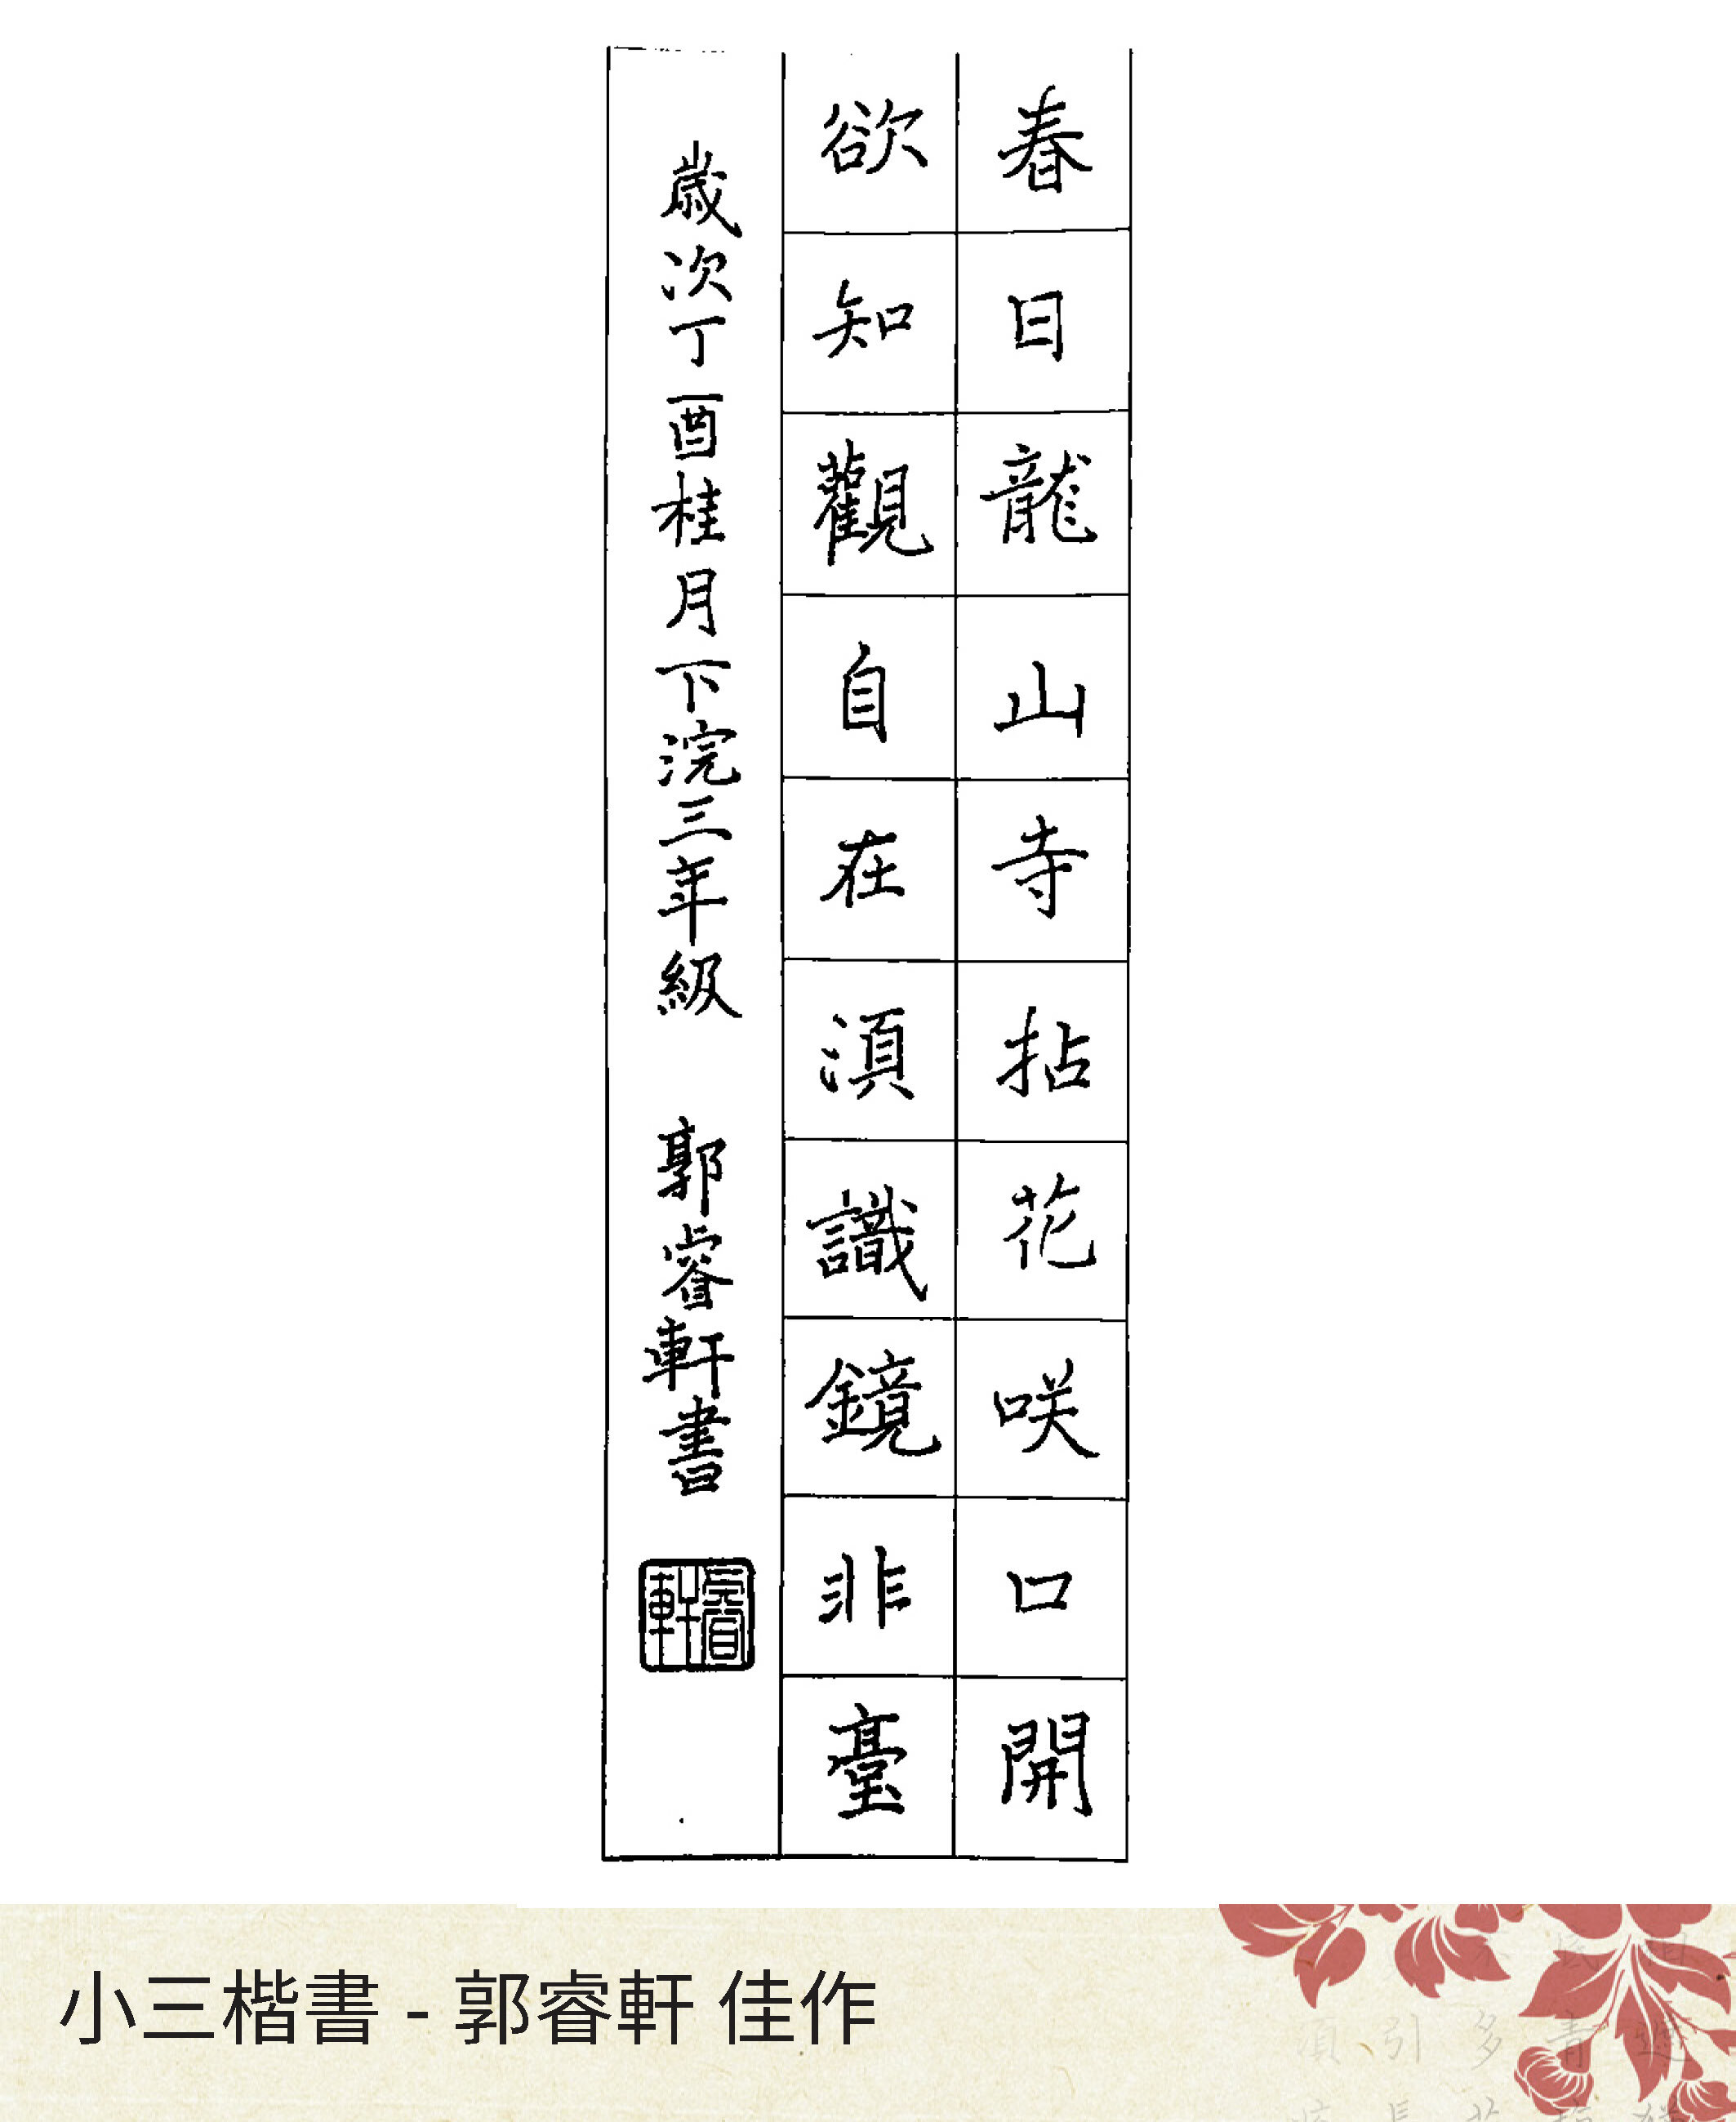 春日龍山寺拈花咲口開
欲知觀自在湏識鏡非臺
歲次丁酉桂月下浣三年級 郭睿軒書
睿軒
小三楷書 - 郭睿軒 佳作